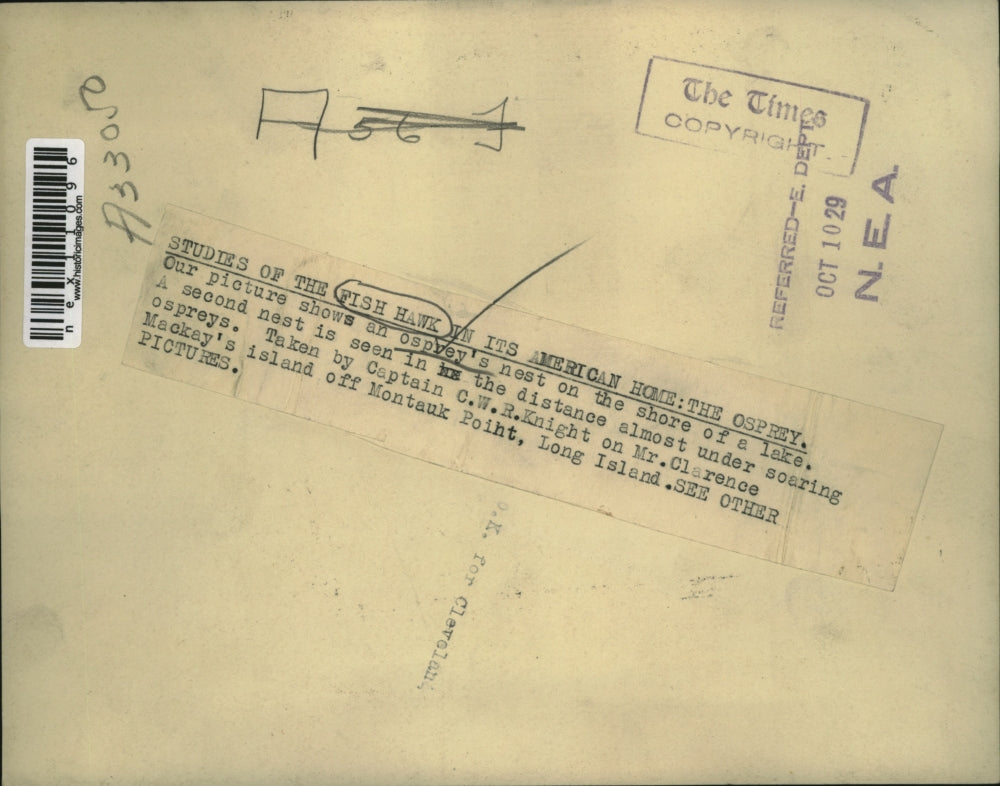 A33050
The Times
COPYRIGHT
REFERRED—E. DEPT.
OCT 10 29
N. E. A.
nex1110996
www.historicimages.com
STUDIES OF THE FISH HAWK IN ITS AMERICAN HOME:THE OSPREY.
Our picture shows an osprey's nest on the shore of a lake.
A second nest is seen in the distance almost under soaring
ospreys. Taken by Captain C.W.R.Knight on Mr.Clarence
Mackay's island off Montauk Poiht, Long Island.SEE OTHER
PICTURES.
O.K. for Clevelan